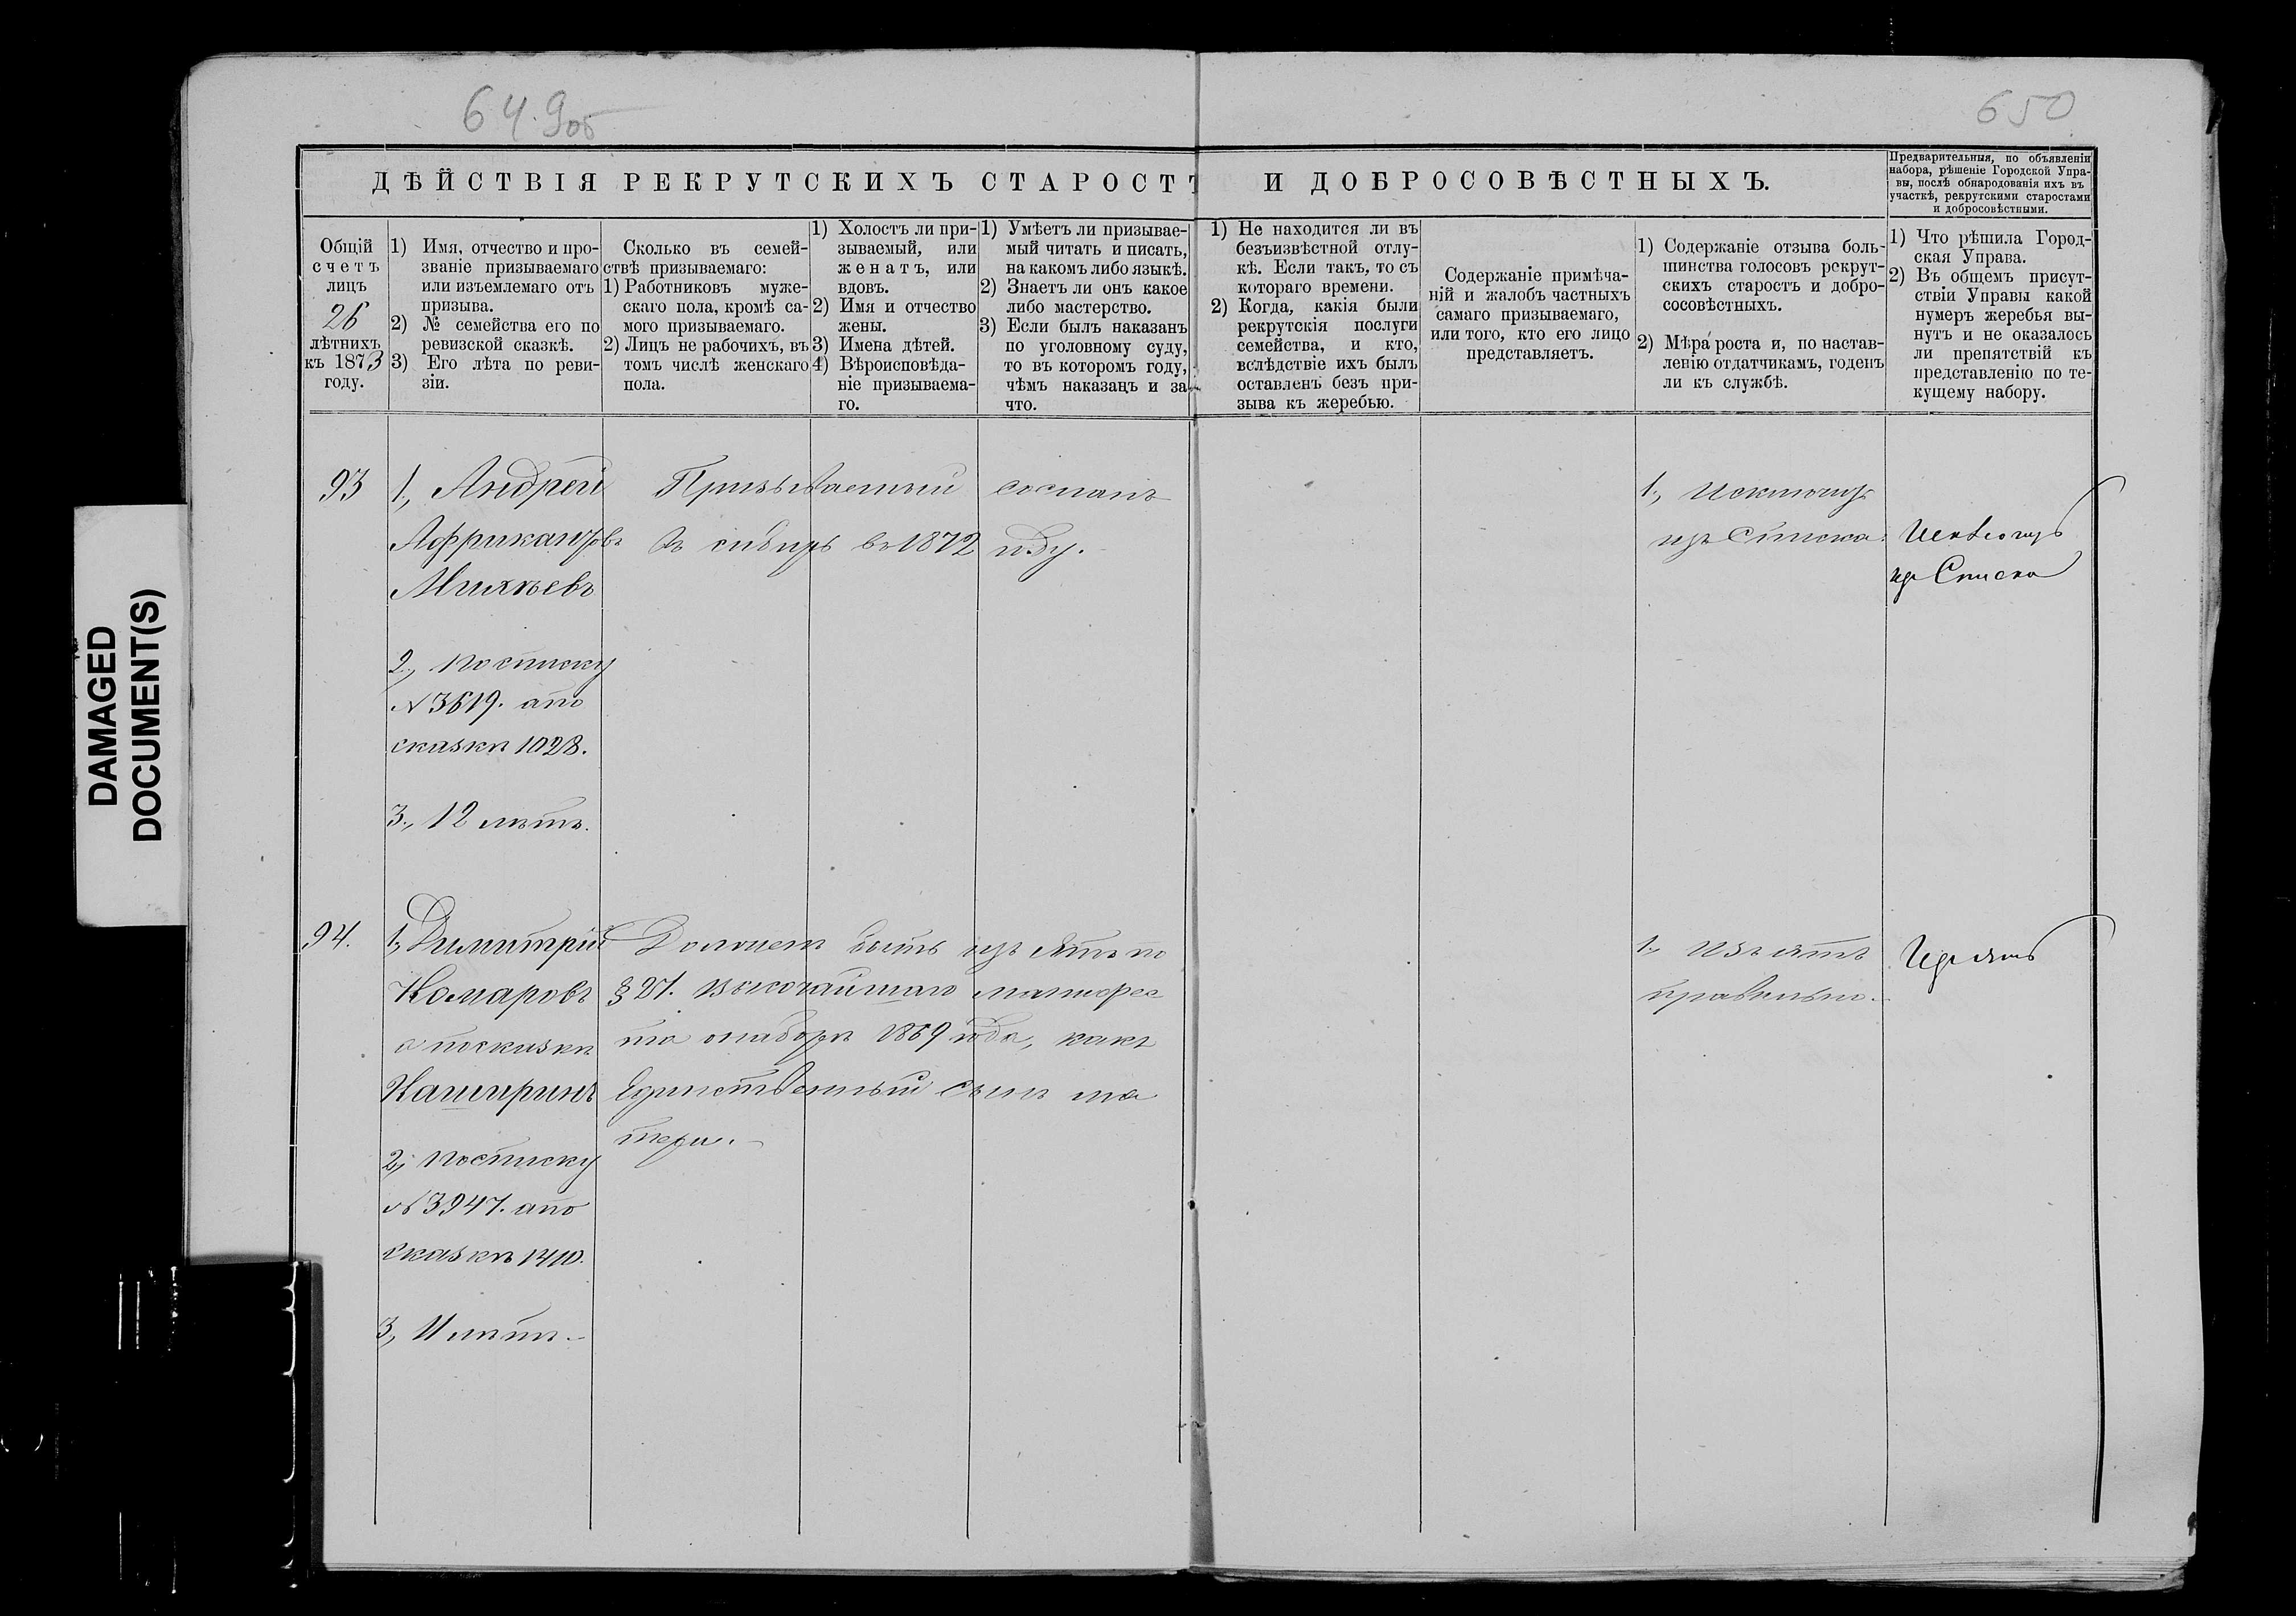 649об
650
ДѢЙСТВІЯ РЕКРУТСКИХЪ СТАРОСТЪ И ДОБРОСОВѢСТНЫХЪ.
Предварительныя, по объявленіи
набора, рѣшеніе Городской Упра-
вы, послѣ обнародованія ихъ въ
участкѣ, рекрутскими старостами
и добросовѣстными.
Общій
счетъ
лицъ
26
лѣтнихъ
къ 1873
году.
1) Имя, отчество и про-
званіе призываемаго
или изъемлемаго отъ
призыва.
2) № семейства его по
ревизской сказкѣ.
3) Его лѣта по реви-
зіи.
Сколько въ семей-
ствѣ призываемаго:
1) Работниковъ муже-
скаго пола, кромѣ са-
мого призываемаго.
2) Лицъ не рабочихъ, въ
томъ числѣ женскаго
пола.
1) Холостъ ли при-
зываемый, или
женатъ, или
вдовъ.
2) Имя и отчество
жены.
3) Имена дѣтей.
4) Вѣроисповѣда-
ніе призываема-
го.
1) Умѣетъ ли призывае-
мый читать и писать,
на какомъ либо языкѣ.
2) Знаетъ ли онъ какое
либо мастерство.
3) Если былъ наказанъ
по уголовному суду,
то въ которомъ году,
чѣмъ наказанъ и за
что.
1) Не находится ли въ
безъизвѣстной отлу-
кѣ. Если такъ, то съ
котораго времени.
2) Когда, какія были
рекрутскія послуги
семейства, и кто,
вслѣдствіе ихъ былъ
оставленъ безъ при-
зыва къ жеребью.
Содержаніе примѣча-
ній и жалобъ частныхъ
самаго призываемаго,
или того, кто его лицо
представляетъ.
1) Содержаніе отзыва боль-
шинства голосовъ рекрут-
скихъ старостъ и добро-
совѣстныхъ.
2) Мѣра роста и, по настав-
ленію отдатчикамъ, годенъ
ли къ службѣ.
1) Что рѣшила Город-
ская Управа.
2) Въ общемъ присут-
ствіи Управы какой
нумеръ жеребья вы-
нутъ и не оказалось
ли препятствій къ
представленію по те-
кущему набору.
93
1., Андрей
Африкановъ
Михѣевъ
2., по списку
№ 3619. а по
сказкѣ 1028.
3., 12 лѣтъ.
Призываемый сосланъ
въ сибирь въ 1872 году.
1., Исключить
изъ списка.
Исключить
изъ Списка
94.
1., Димитрій
Комаровъ
а по сказкѣ
Каширинъ
2., по списку
№ 3947. а по
сказкѣ 1410.
3., 11 лѣтъ.
Долженъ быть изъятъ по
§ 27. Высочайшаго манифес
та о наборѣ 1869 года, какъ
Единственный сынъ ма
тери.
1., Изъять
правильно.
Изъять
DAMAGED
DOCUMENT(S)